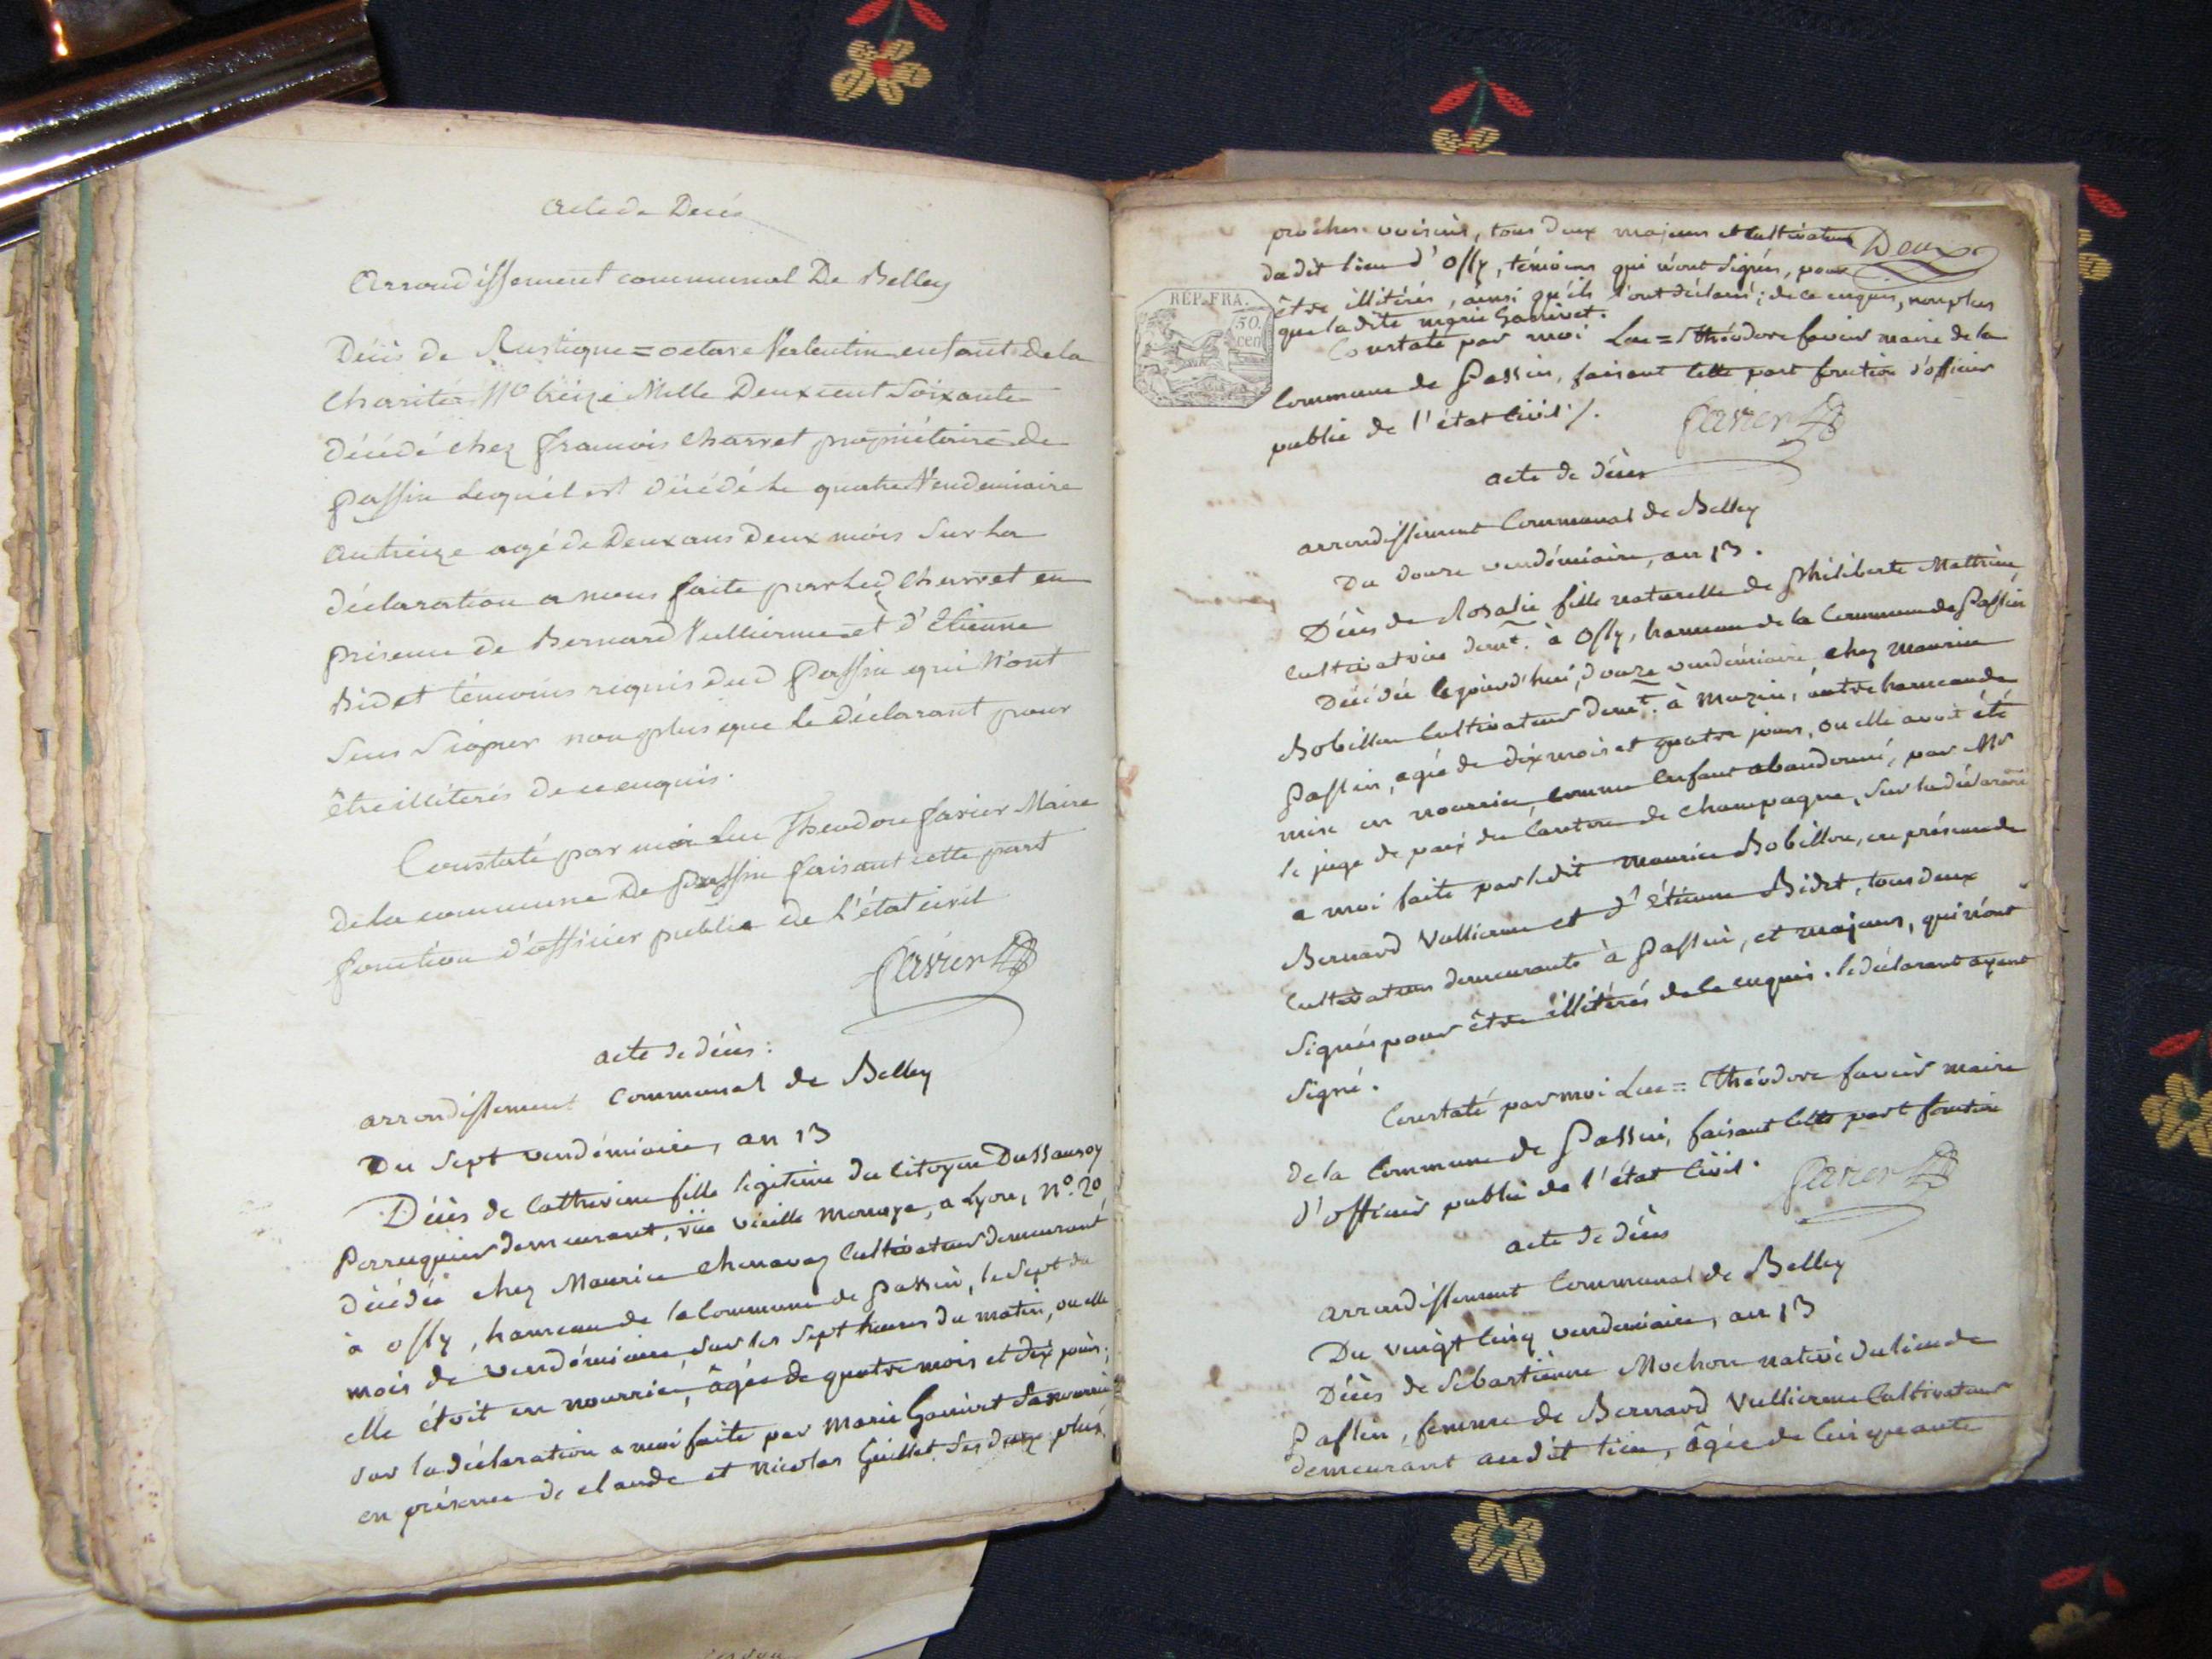 Acte de Decés
Arrondissement communal De Belley
Décès de Rustique = octave Valentin enfant de la
Charité N° treize Mille Deux cent Soixante
Décédé chez francois Charvet propriétaire de
passin lequel est décédé le quatre Vendemiaire
an treize agé de Deux ans Deux mois Sur La
déclaration a nous faite par Led Charvet en
présence de Bernard Vullierme et d'Etienne
Bidet témoins requis dud passin qui N'ont
Seus Signer non plus que le déclarant pour
être illiterés de ce enquis.
Constaté par moi Luc Theodore favier Maire
de la commune De passin faisant cette part
fonction d'officier public de L'état civil
favier
acte de décès :
arrondissement communal de Belley
Du Sept vendémiaire, an 13
Décès de Catherine fille légitime du Citoyen Dussausoy
Perruquier demeurant, rüe vieille monoye, a Lyon, N°. 20,
décédée chez Maurice chenavaz Cultivateur demeurant
à ossy, hameau de la Commune de passin, le Sept du
mois de vendémiaire, sur les Sept heures du matin, ou elle
elle étoit en nourrice, âgée de quatre mois et dix jours;
sur la déclaration a moi faite par marie Ganivet Sa nourrice
en présence de claude et nicolas Guillet Ses deux plus
proches voisins, tous deux majeurs et Cultivateurs
Deux
dudit lieu d'ossy, témoins qui n'ont Signés, pour
être illitérés, ainsi qu'ils l'ont déclaré; de ce enquis, non plus
que la dite marie Ganivet.
REP. FRA.
50.
cen
Constaté par moi Luc = théodore favier maire de la
Commune de Passin, faisant Cette part fonction d'officier
public de l'état Civil ./.
favier
acte de décès
arrondissement Communal de Belley
Du douze vendémiaire, an 13.
Décès de Rosalie fille naturelle de Philiberte Mathieu,
Cultivatrice demt. à Ossy, hameau de la Commune de Passin
Décédée le jourd'hui, douze vendémiaire, chez maurice
Bobillon Cultivateur demt. à muzin, autre hameau de
Passin, agée de dix mois et quatre jours, ou elle avoit été
mise en nourrice, comme Enfant abandonné, par Mr
le juge de paix du Canton de champagne, Sur la déclaraon
a moi faite par ledit maurice Bobillon, en présence de
Bernard Vullierme et d'étienne Bidet, tous deux
Cultivateurs demeurants à Passin, et majeurs, qui n'ont
Signés pour être illitérés de Ce enquis. le déclarant ayant
Signé.
Constaté par moi Luc = théodore favier maire
de la Commune de Passin, faisant Cette part fonction
d'officier public de l'état Civil.
favier
acte de décès
arrondissement Communal de Belley
Du vingt Cinq vendemiaire, an 13
Décès de Sébastienne Mochon native du lieu de
Passin, femme de Bernard Vullierme Cultivateur
demeurant audit lieu, âgée de Cinquante